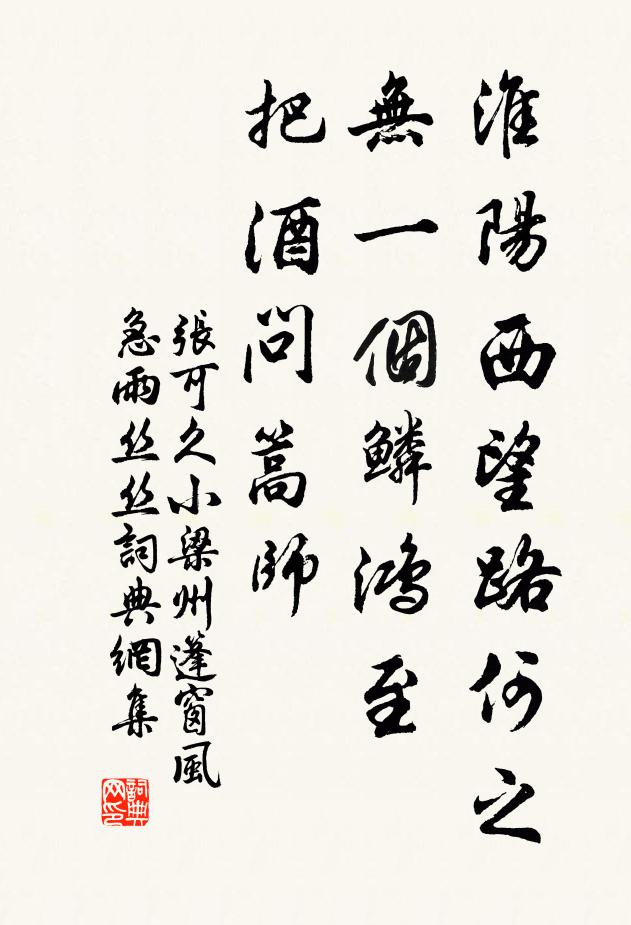 淮陽西望路何之
無一個鱗鴻至
把酒問篙師
張可久小梁州篷窗風
急雨丝丝詞典網集
詞典网印